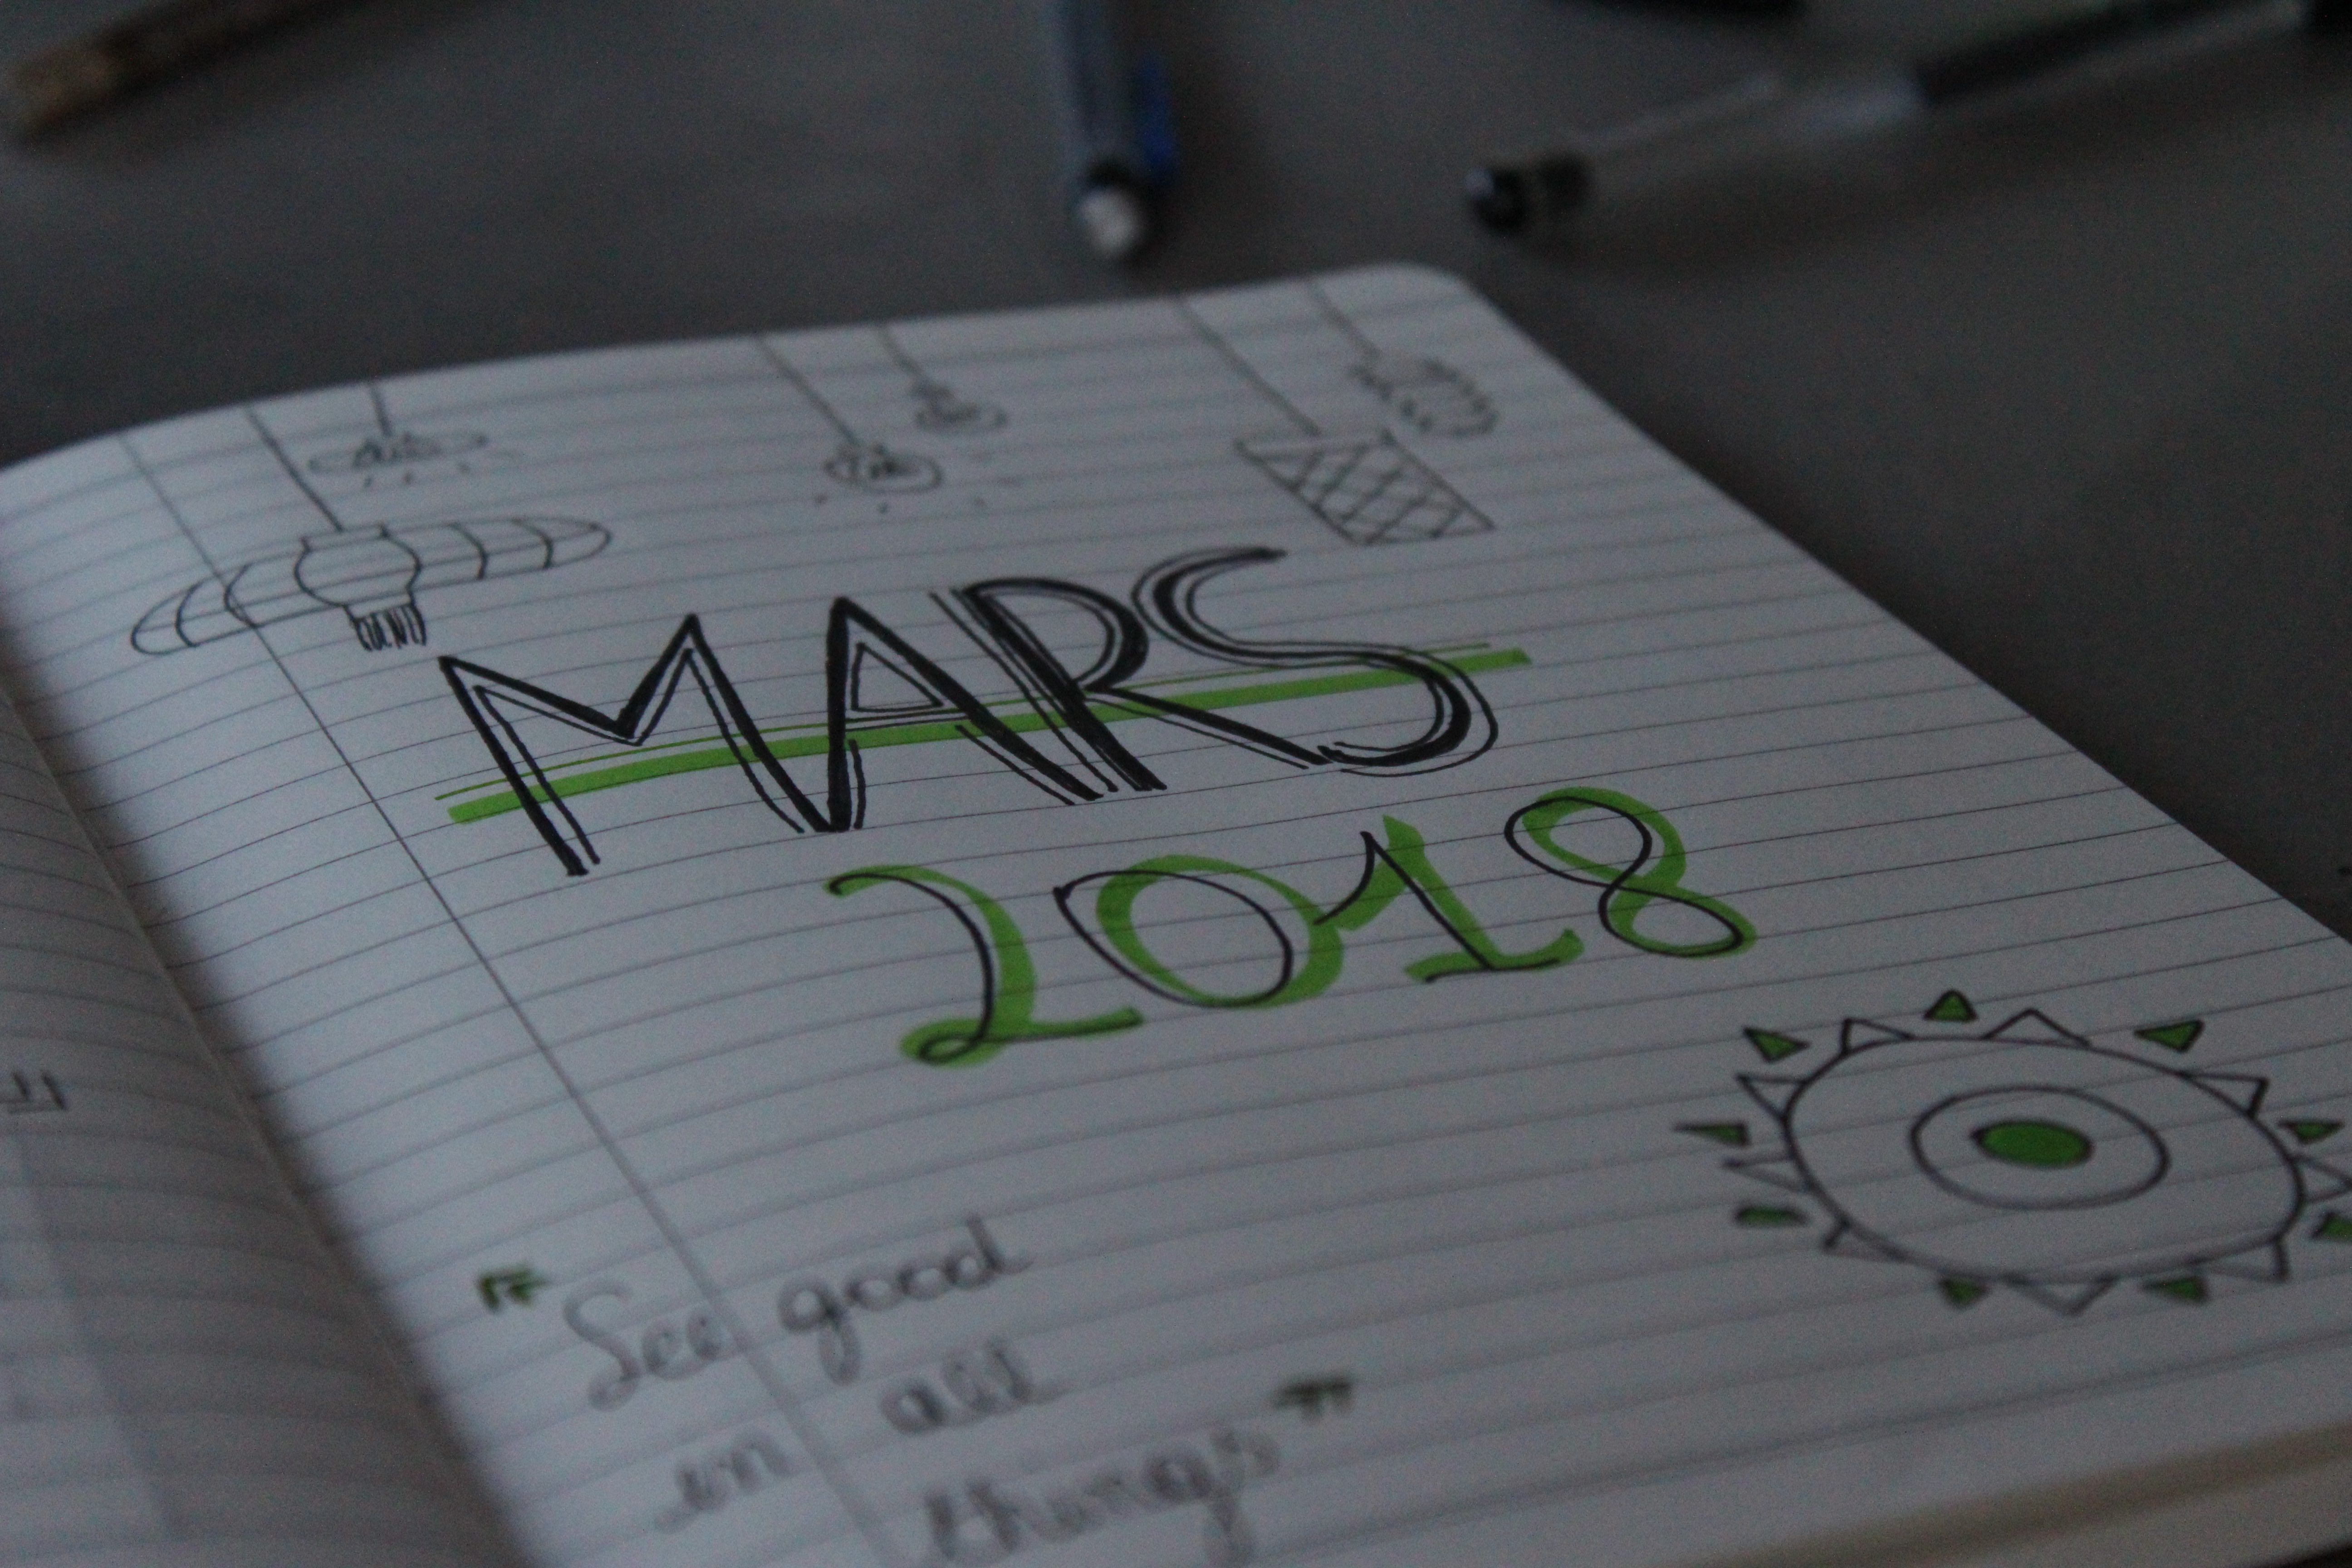 MARS
2018
"See good
in all
things"